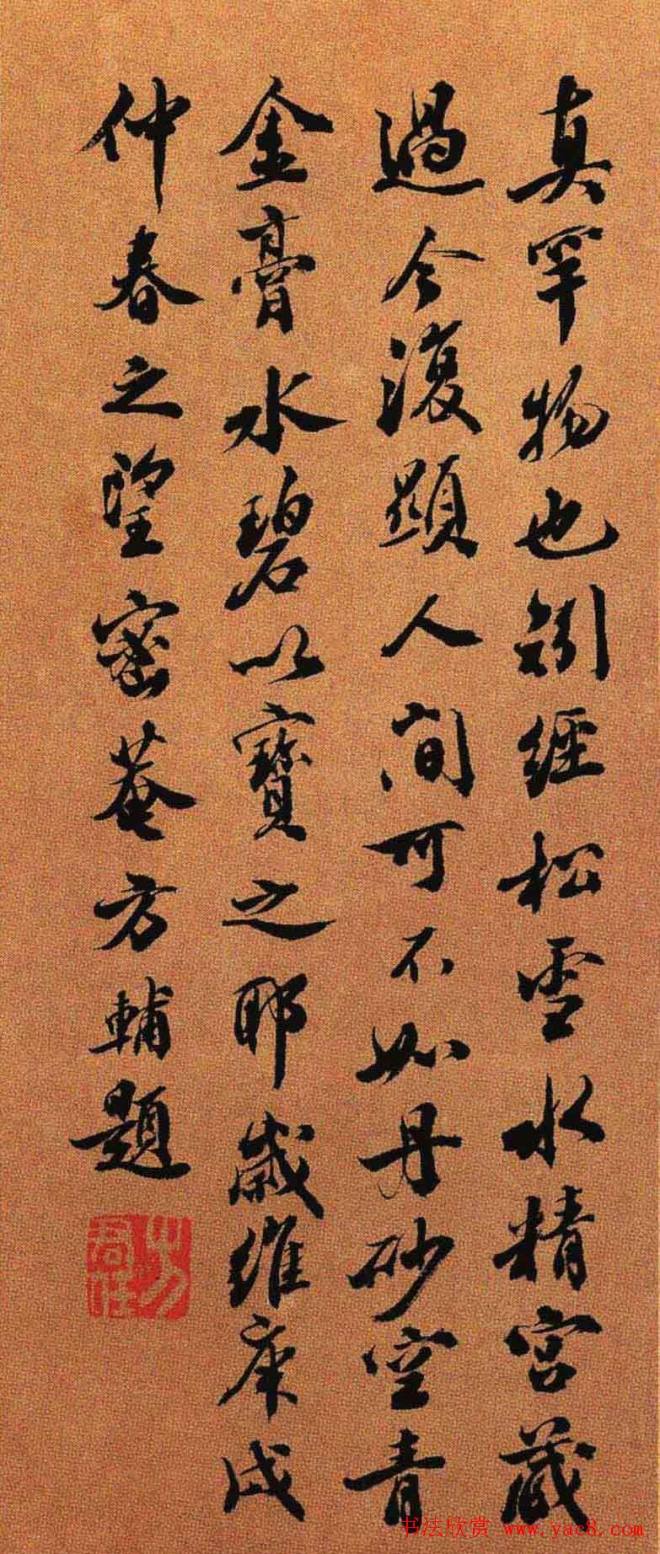 真罕物也矧經松雪水精宮藏
過今復顯人間可不如丹砂空青
金膏水碧以寶之耶歲維庚戌
仲春之望密菴方輔題
书法欣赏 www.yac8.com